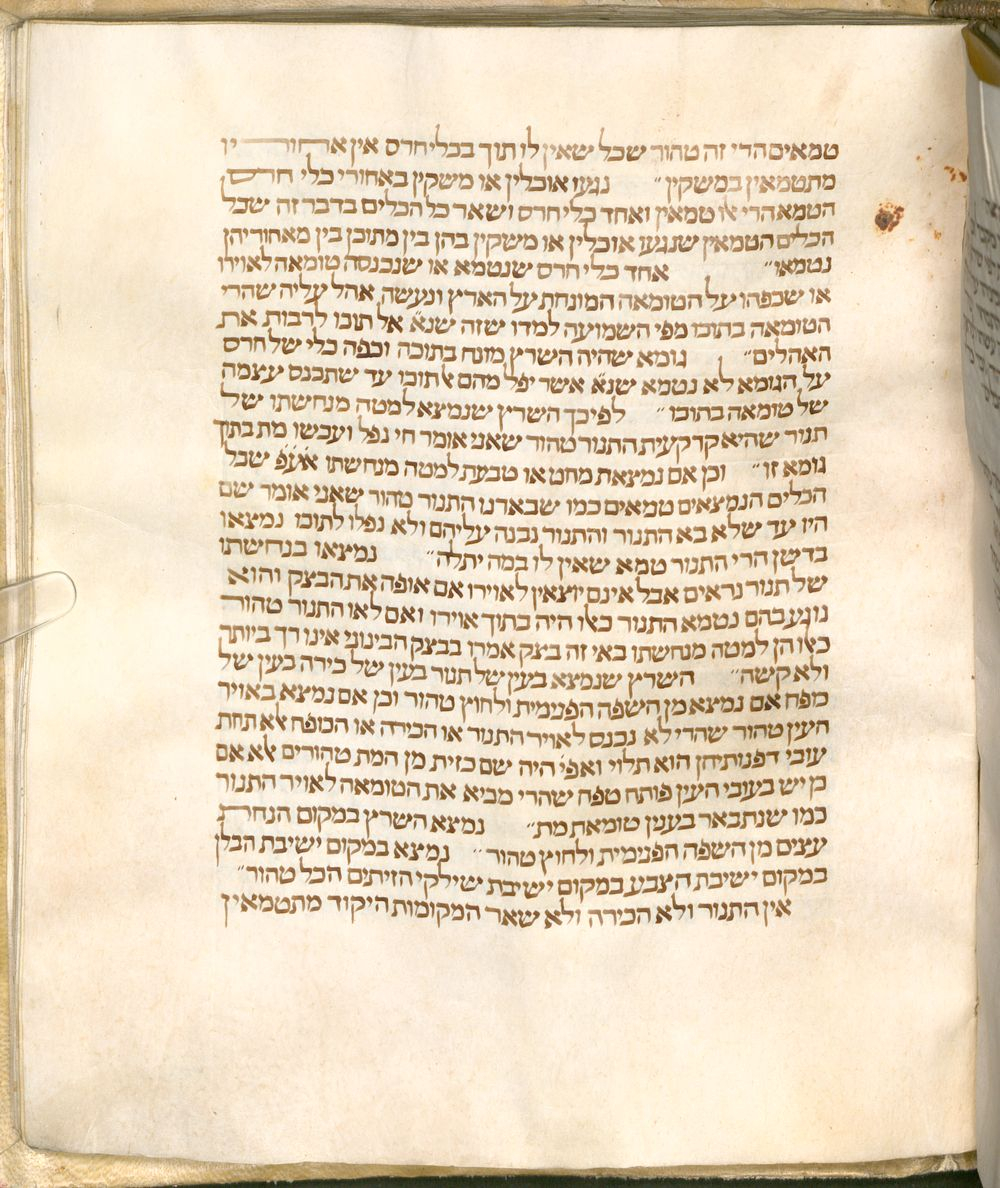 טמאים הרי זה טהור שכל שאין לו תוך בכלי חרס אין אחוריו
מתטמאין במשקין״ נגעו אוכלין או משקין באחורי כלי חרס
הטמא הרי אלו טמאין ואחד כלי חרס ושאר כל הכלים בדבר זה שכל
הכלים הטמאין שנגעו אוכלין או משקין בהן בין מתוכן בין מאחוריהן
נטמאו״ אחד כלי חרס שנטמא או שנכנסה טומאה לאוירו
או שכפהו על הטומאה המונחת על הארץ ונעשה אהל עליה שהרי
הטומאה בתוכו מפי השמועה למדו שזה שנא׳ אל תוכו לרבות את
האהלים״ גומא שהיה השרץ מונח בתוכה וכפה כלי של חרס
על הגומא לא נטמא שנא׳ אשר יפל מהם אל תוכו עד שתכנס עצמה
של טומאה בתוכו״ לפיכך השרץ שנמצא למטה מנחשתו של
תנור שהיא קרקעית התנור טהור שאני אומר חי נפל ועכשו מת בתוך
גומא זו״ וכן אם נמצאת מחט או טבעת למטה מנחשתו אע״פ שכל
הכלים הנמצאים טמאים כמו שבארנו התנור טהור שאני אומר שם
היו עד שלא בא התנור והתנור נבנה עליהם ולא נפלו לתוכו נמצאו
בדשן הרי התנור טמא שאין לו במה יתלה״ נמצאו בנחשתו
של תנור נראים אבל אינם יוצאין לאוירו אם אופה את הבצק והוא
נוגע בהם נטמא התנור כאלו היה בתוך אוירו ואם לאו התנור טהור
כאלו הן למטה מנחשתו באי זה בצק אמרו בבצק הבינוני אינו רך ביותר
ולא קשה״ השרץ שנמצא בעין של תנור בעין של כירה בעין של
כופח אם נמצא מן השפה הפנימית ולחוץ טהור וכן אם נמצא באויר
העין טהור שהרי לא נכנס לאויר התנור או הכירה או הכופח אלא תחת
עובי דפנותיהן הוא תלוי ואפי׳ היה שם כזית מן המת טהורים אלא אם
כן יש בעובי העין פותח טפח שהרי מביא את הטומאה לאויר התנור
כמו שנתבאר בענין טומאת מת״ נמצא השרץ במקום הנחת
עצים מן השפה הפנימית ולחוץ טהור״ נמצא במקום ישיבת הבלן
במקום ישיבת הצבע במקום ישיבת שילקי הזיתים הכל טהור״
אין התנור ולא הכירה ולא שאר המקומות היקוד מתטמאין